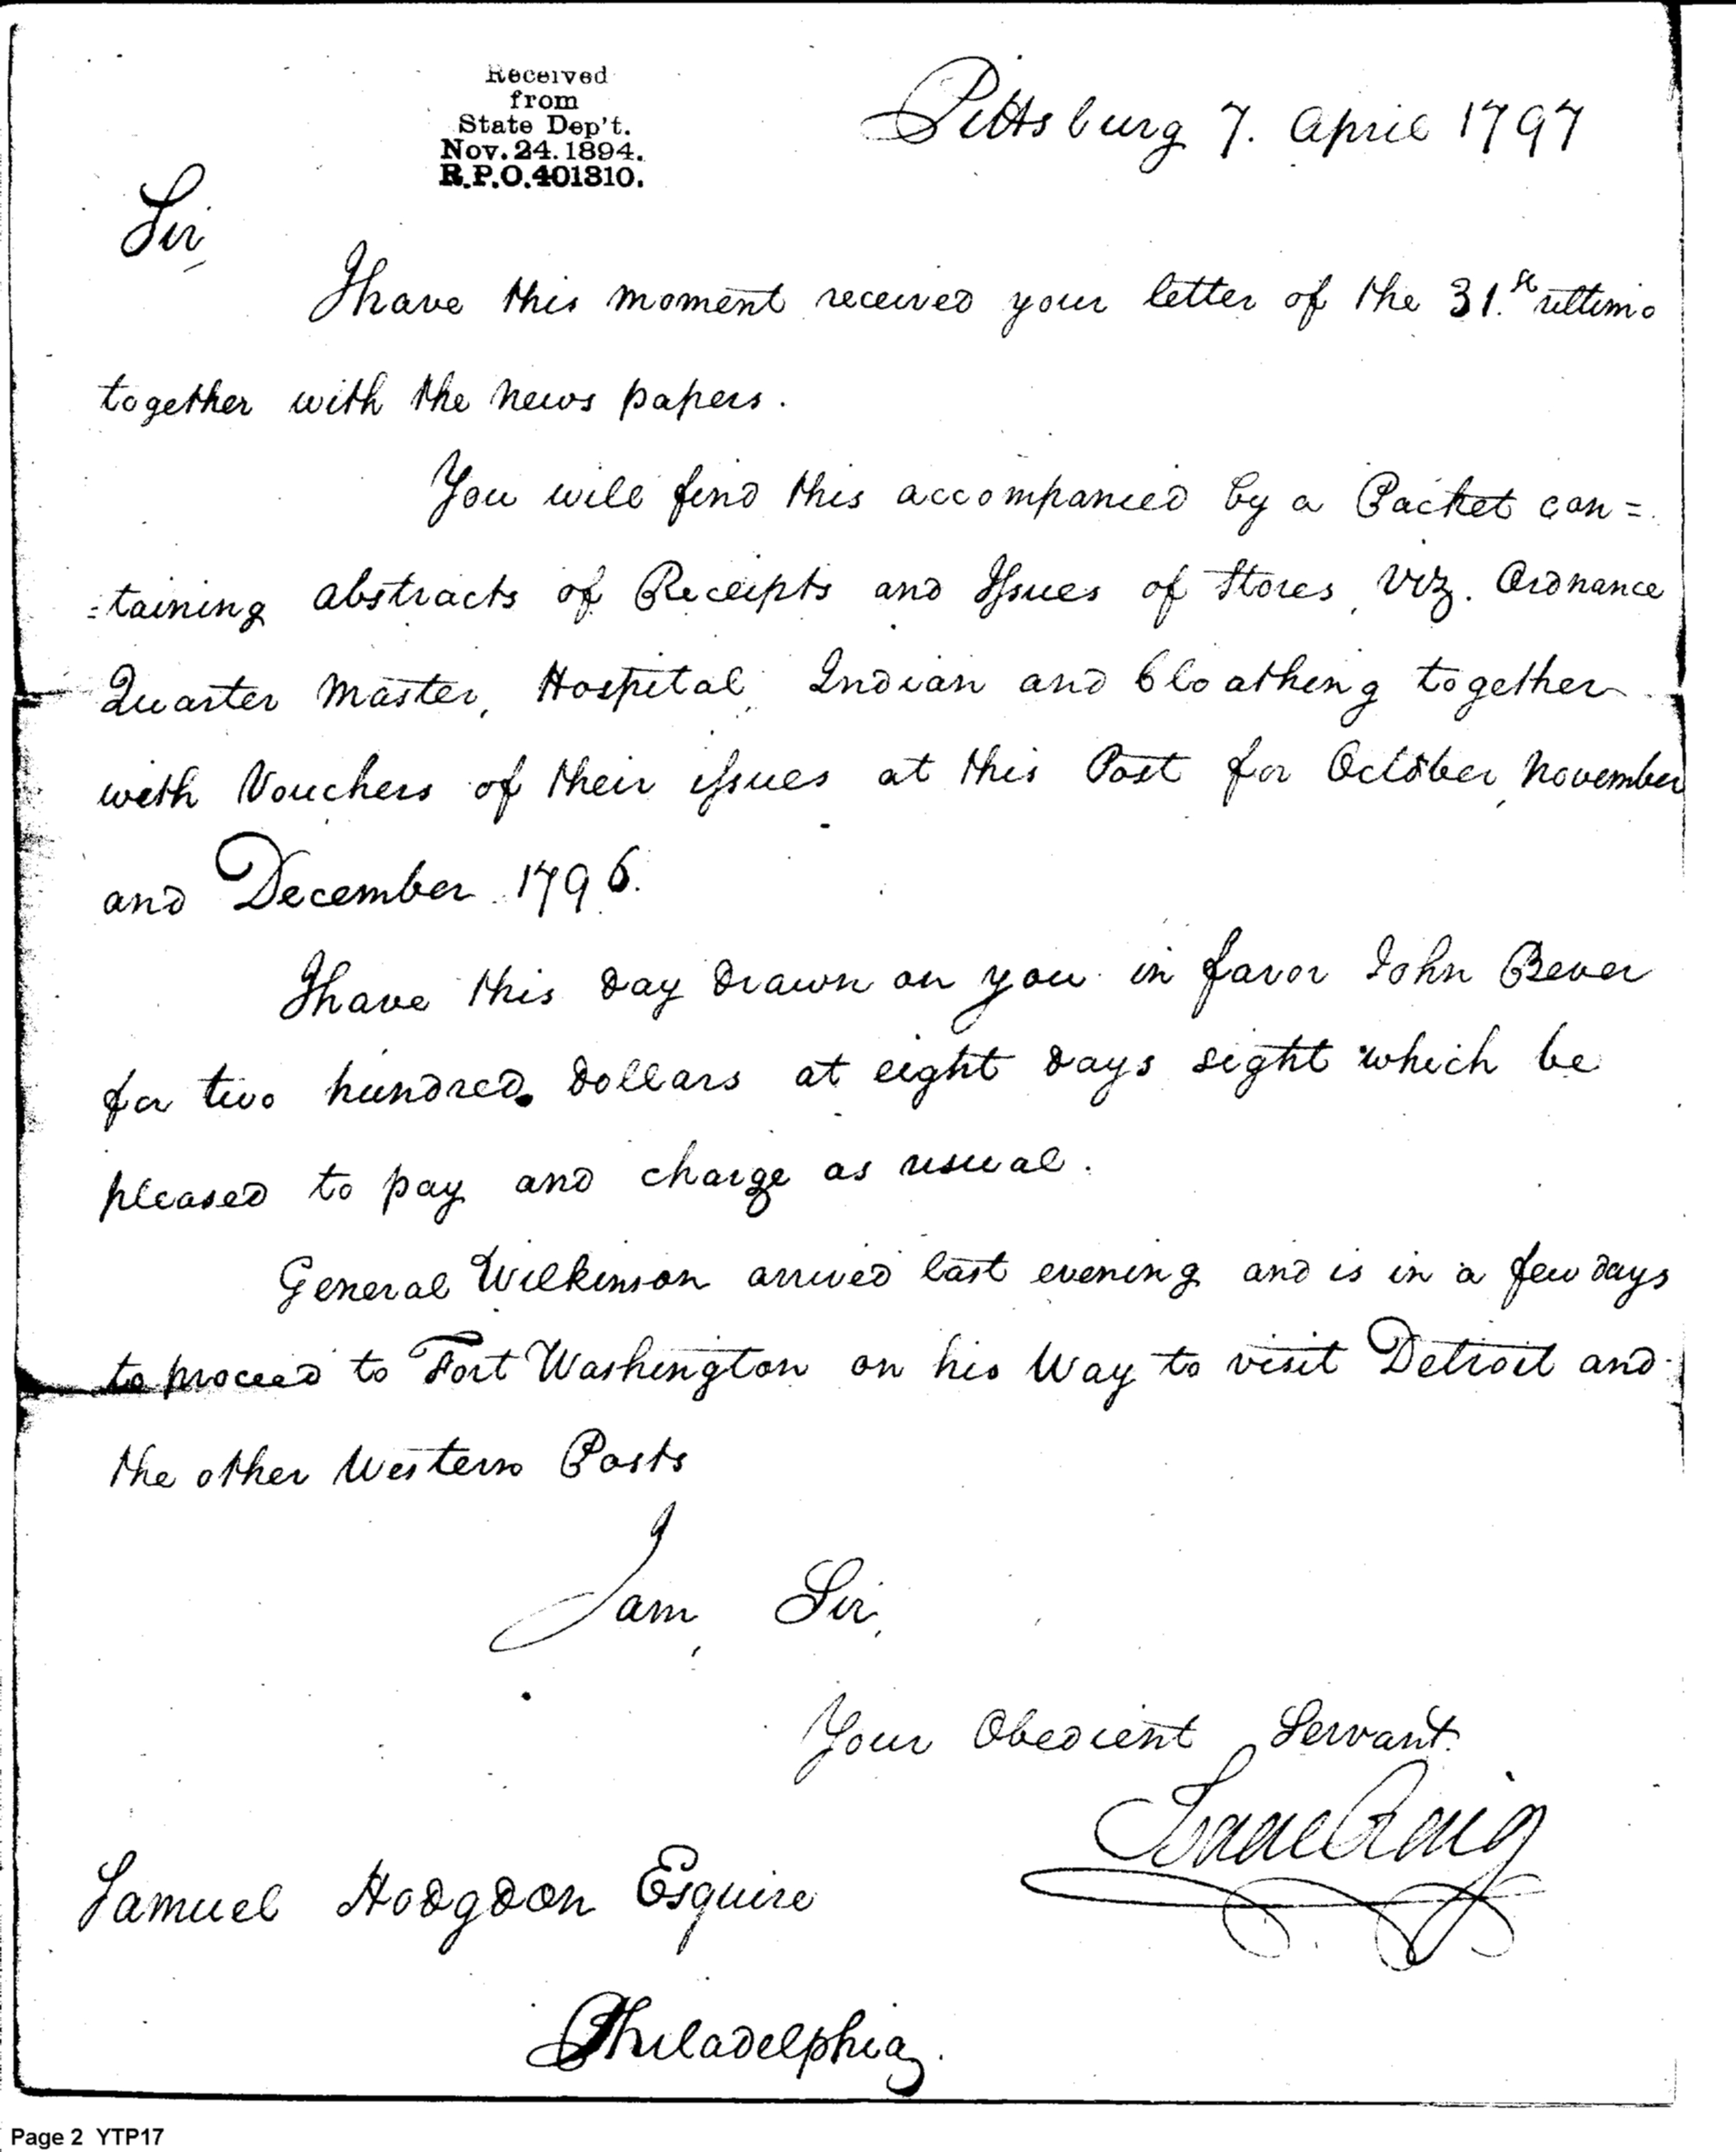 Received
from
State Dep't.
Nov. 24. 1894.
R.P.O. 401310.
Pittsburg 7. April 1797
Sir,
I have this moment received your letter of the 31.st ultimo
together with the news papers.
You will find this accompanied by a Packet con=
=taining abstracts of Receipts and Issues of Stores, Viz. Ordnance
Quarter Master, Hospital, Indian and Cloathing together
with Vouchers of their issues at this Post for October, November
and December 1796.
I have this day drawn on you in favor John Bever
for two hundred Dollars at eight days sight which be
pleased to pay and charge as usual.
General Wilkinson arrived last evening and is in a few days
to proceed to Fort Washington on his Way to visit Detroit and
the other Western Posts
I am, Sir,
Your Obedient Servant.
Isaac Craig
Samuel Hodgdon Esquire
Philadelphia.
Page 2 YTP17